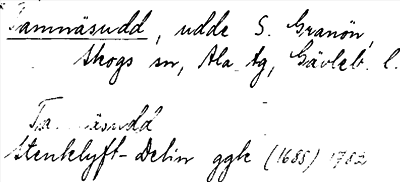 Tamnäsudd, udde S. Granön,
Skogs sn, Ala tg, Gävleb. l.
Ta.. näsudd
Stenklyft-Delin ggk (1685) 1782